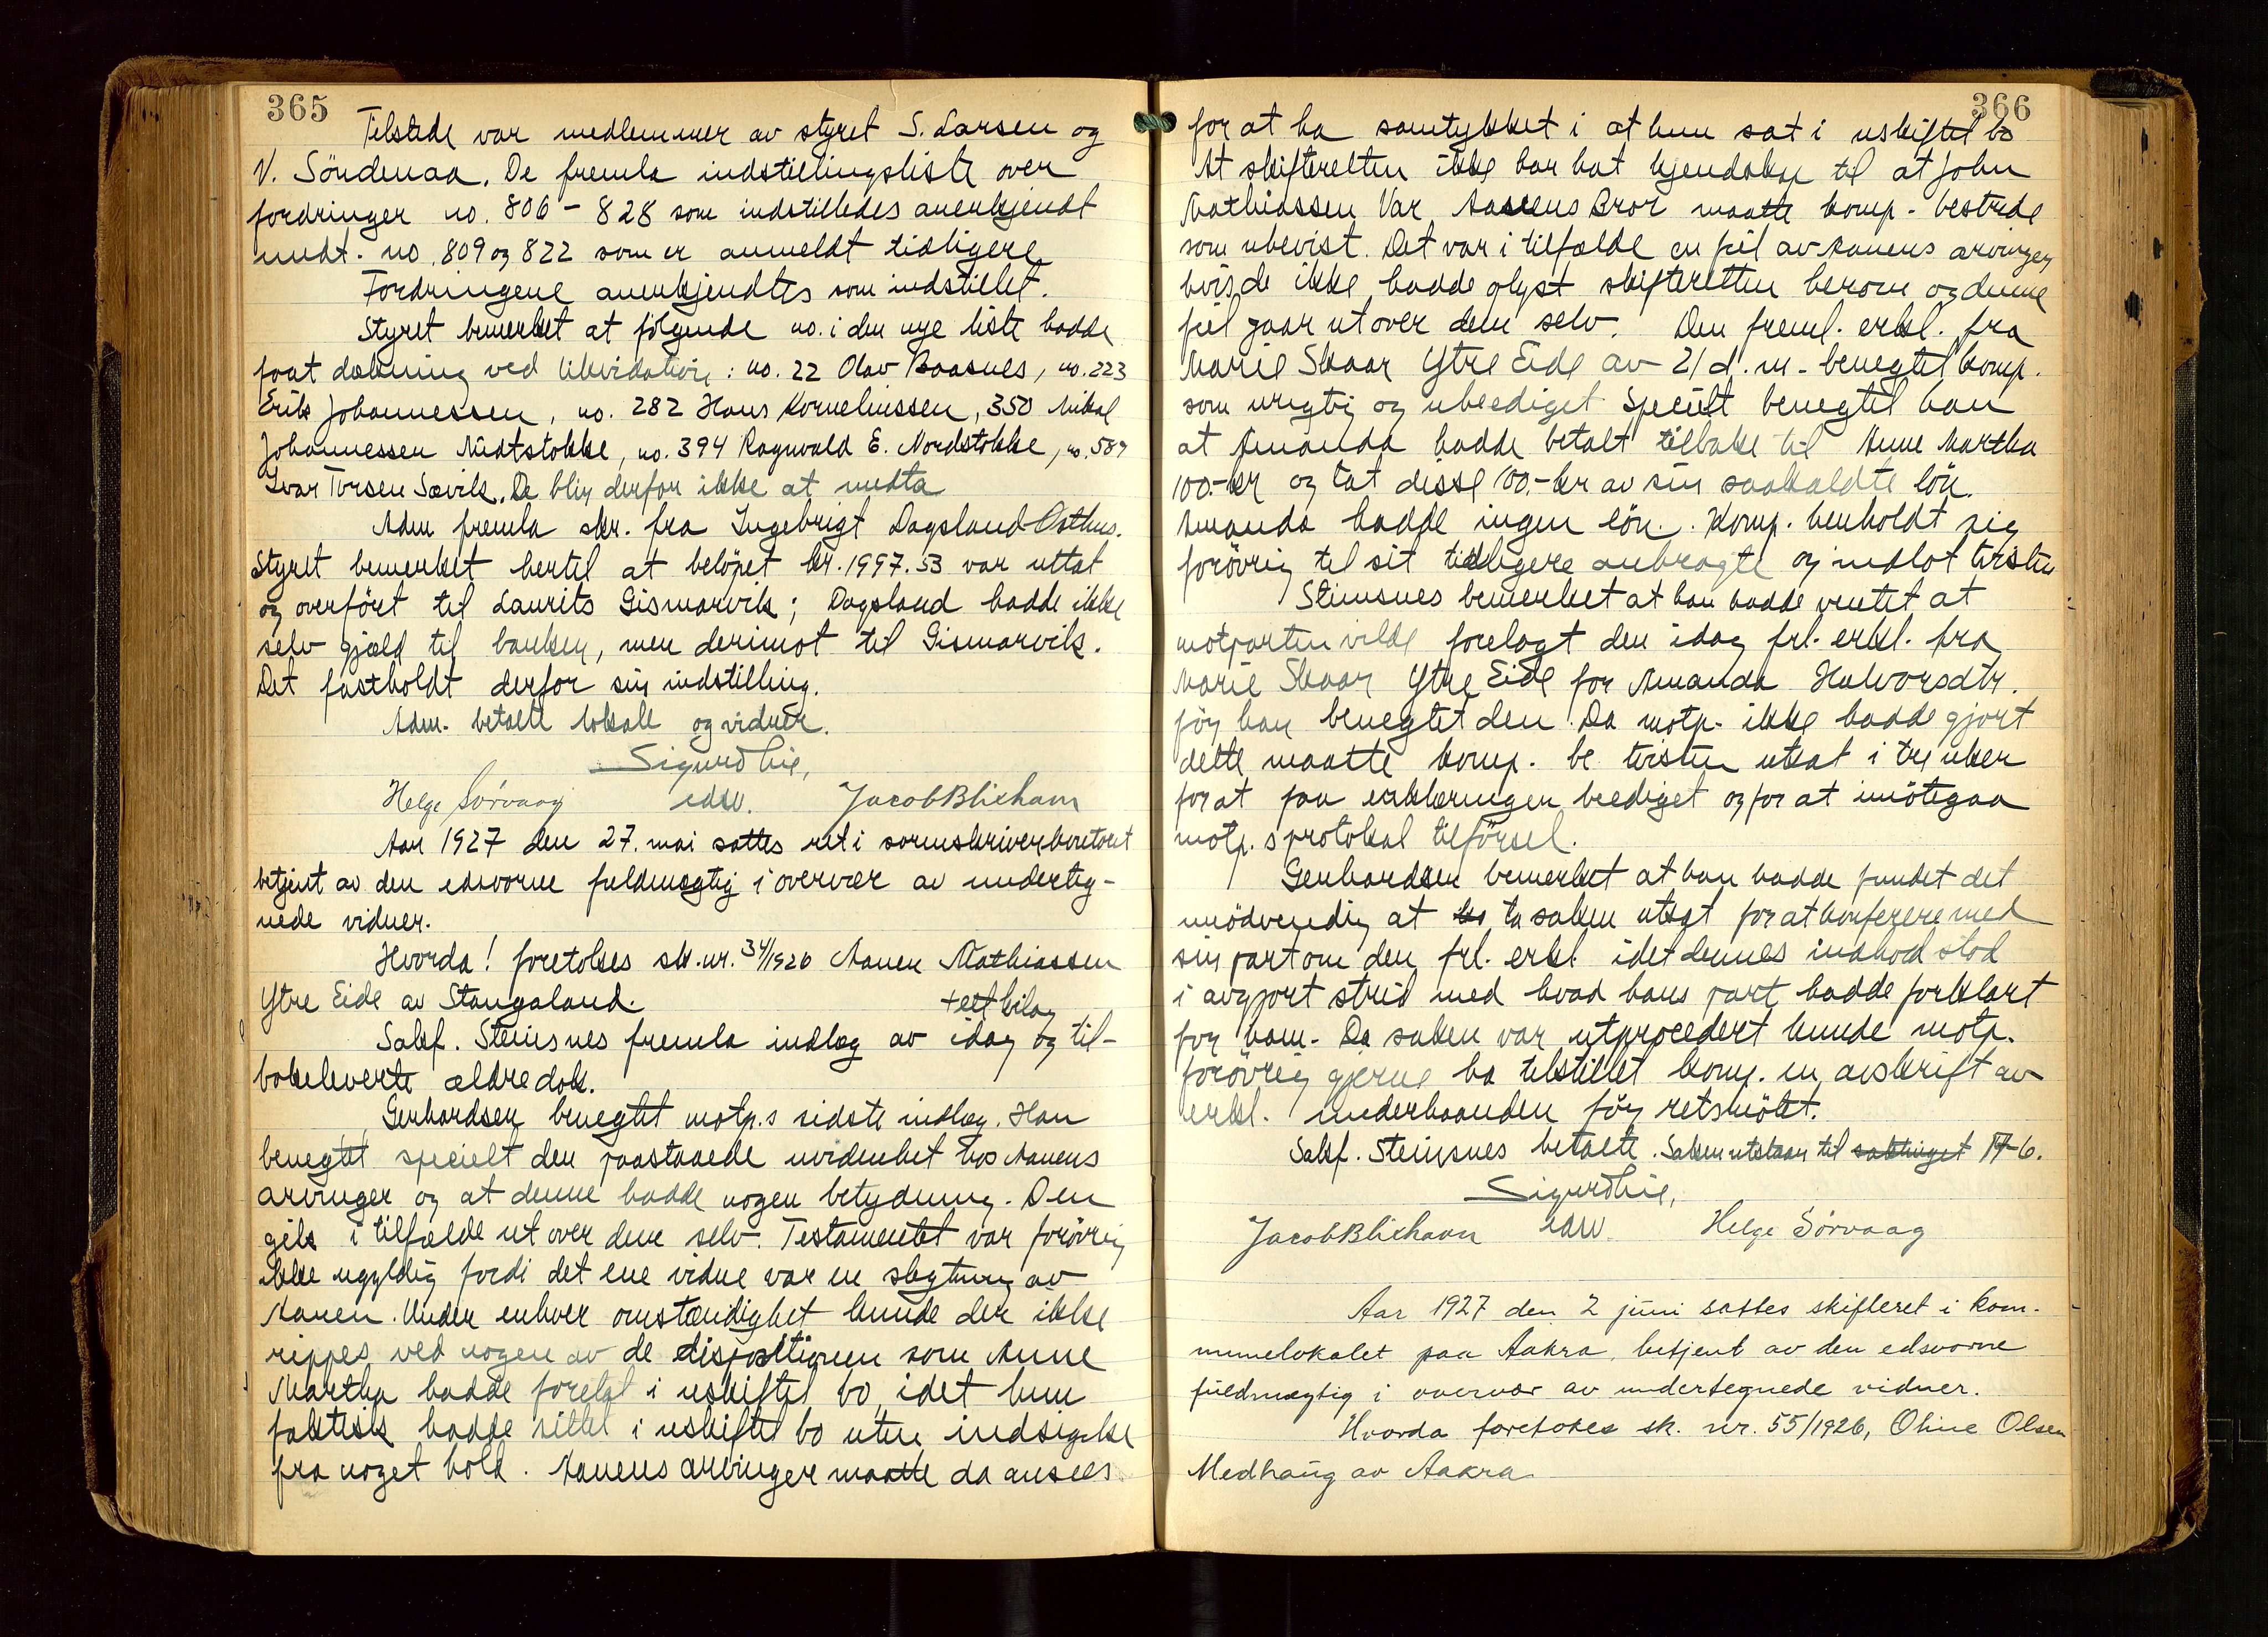 365
Tilstede var medlemmer av styret S. Larsen og
V. Söndenaa. De fremla indstillingsliste over
fordringer no. 806 - 828 som indstilledes anerkjendt
undt. no. 809 og 822 som er anmeldt tidligere
Fordringene anerkjendtes som indstillet.
Styret bemerket at følgende no. i den nye liste hadde
faat dækning ved likvidation: no. 22 Olav Baasnes, no. 223
Erik Johannessen, no. 282 Hans Korneliussen, 350 Mikal
Johannessen Midtstokke, no. 394 Ragnvald E. Nordstokke, no. 589
Ivar Torsen Sævik. De blir derfor ikke at medta
Adm fremla skr. fra Ingebrigt Dagsland Osthus.
Styret bemerket hertil at belöpet kr. 1997.53 var uttat
og overfört til Laurits Gismarvik; Dagsland hadde ikke
selv gjæld til banken, men derimot til Gismarvik.
Det fastholdt derfor sin indstilling.
Adm. betalte lokale og vidner.
Sigurd Lie,
Helge Sørvaag edsv. Jacob Blixhavn
Aar 1927 den 27. mai sattes ret i sorenskriverkontoret
betjent av den edsvorne fuldmægtig i overvær av underteg-
nede vidner.
Hvorda! foretokes sk.nr. 34/1926 Aanen Mathiassen
Ytre Eide av Stangaland.
+ ett bilag
Sakf. Steinsnes fremla indlæg av idag og til-
bakeleverte ældre dok.
Gerhardsen benegtet motp.s sidste indlæg. Han
benegtet specielt den paastaaede uvidenhet hos Aanens
arvinger og at denne hadde nogen betydning. Den
gik i tilfælde ut over dem selv. Testamentet var forövrig
ikke ugyldig fordi det ene vidne var en slegtning av
Aanen. Under enhver omstændighet kunde der ikke
rippes ved nogen av de disposition̄en som Anne
Martha hadde foretat i uskiftet bo, idet hun
faktisk hadde sittet i uskiftet bo uten indsigelse
fra noget hold. Aanens arvinger maatte da ansees
366
for at ha samtykket i at hun sat i uskiftet bo
At skifteretten ikke har hat kjendskap til at John
Mathiassen Var Aanens Bror maatte komp. bestride
som ubevist. Det var i tilfælde en feil av Aanens arvinger
hvis de ikke hadde oplyst skifteretten herom og denne
feil gaar ut over dem selv. Den freml. erkl. fra
Marie Skaar Ytre Eide av 21 d.m. benegtet komp.
som urigtig og ubeediget Specielt benegtet han
at Amanda hadde betalt tilbake til Anne Martha
100.-kr og tat disse 100.-kr av sin saakaldte lön.
Amanda hadde ingen lön. Komp. henholdt sig
forövrig til sit tidligere anbragte og indlot tvisten
Steinsnes bemerket at han hadde ventet at
motparten vilde forelagt den idag frl. erkl. fra
Marie Skaar Ytre Eide for Amanda Halvorsdtr.
för han benegtet den. Da motp. ikke hadde gjort
dette maatte komp. be tvisten utsat i tre uker
for at faa erklæringen beediget og for at imötegaa
motp.s protokol tilförsel.
Gerhardsen bemerket at han hadde fundet det
unödvendig at ta saken utsat for at konferere med
sin part om den frl. erkl. idet dennes indhold stod
i avgjort strid med hvad hans part hadde forklart
for ham. Da saken var utprocedert kunde motp.
forövrig gjerne ha tilstillet komp. en avskrift av
erkl. underhaanden för retsmötet.
Sakf. Steinsnes betalte. Saken utstaar til saktinget 17-6.
Sigurd Lie,
Jacob Blixhavn edsv. Helge Sørvaag
Aar 1927 den 2 juni sattes skifteret i kom-
munelokalet paa Aakra, betjent av den edsvorne
fuldmægtig i overvær av undertegnede vidner.
Hvorda foretokes sk. nr. 55/1926, Oline Olsen
Medhaug av Aakra